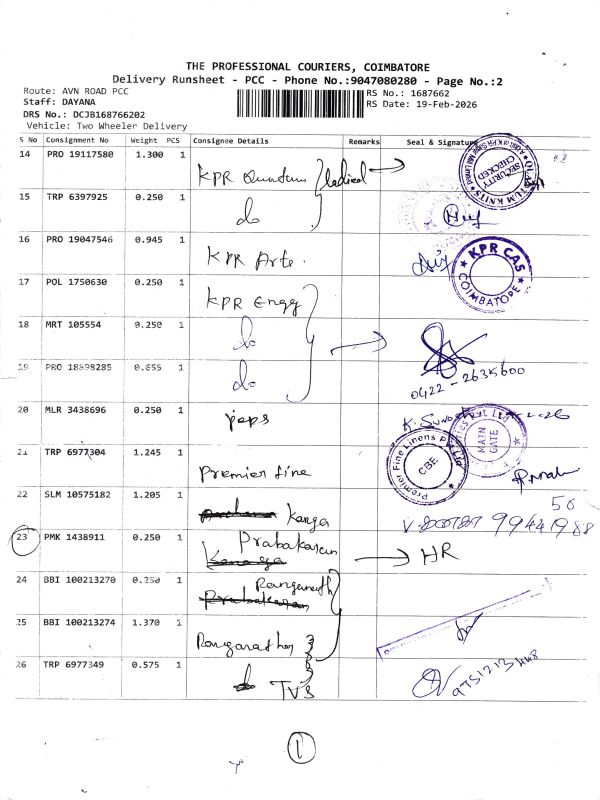 THE PROFESSIONAL COURIERS, COIMBATORE
Delivery Runsheet - PCC - Phone No.:9047080280 - Page No.:2
Route: AVN ROAD PCC
RS No.: 1687662
Staff: DAYANA
RS Date: 19-Feb-2026
DRS No.: DCJB168766202
Vehicle: Two Wheeler Delivery
S No Consignment No Weight PCS Consignee Details Remarks Seal & Signature
14 PRO 19117580 1.300 1 KPR Quantum
SECURITY CHECKED
15 TRP 6397925 0.250 1 do
16 PRO 19047546 0.945 1 KPR Arte.
KPR CAS COIMBATORE
17 POL 1750630 0.250 1 KPR Engg
18 MRT 105554 0.250 1 do
19 PRO 18698285 0.655 1 do
0422-2635600
20 MLR 3438696 0.250 1
21 TRP 6977304 1.245 1 Premier fine
Premier Fine Linens Pvt Ltd CBE
MAIN GATE
22 SLM 10575182 1.205 1 Kanga
23 PMK 1438911 0.250 1 Prabakaran HR
24 BBI 100213270 0.250 1 Ranganath
25 BBI 100213274 1.370 1
26 TRP 6977349 0.575 1 do TVS
1